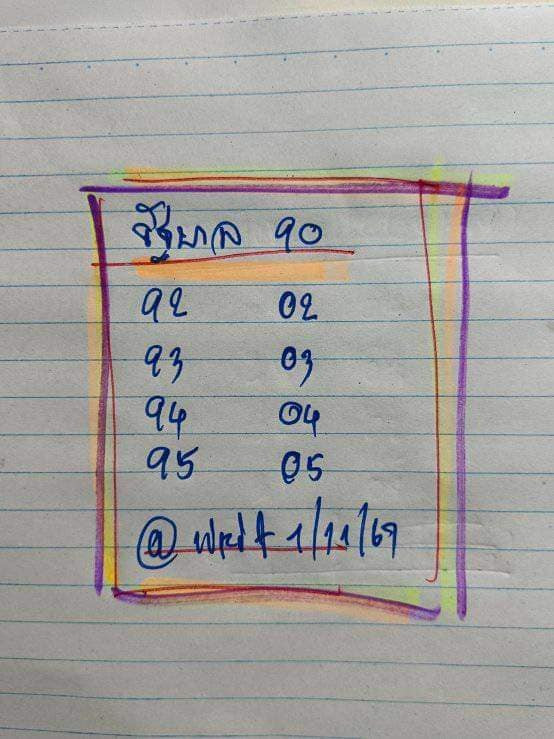 รัฐบาล 90
92 02
93 03
94 04
95 05
@ 1/11/67